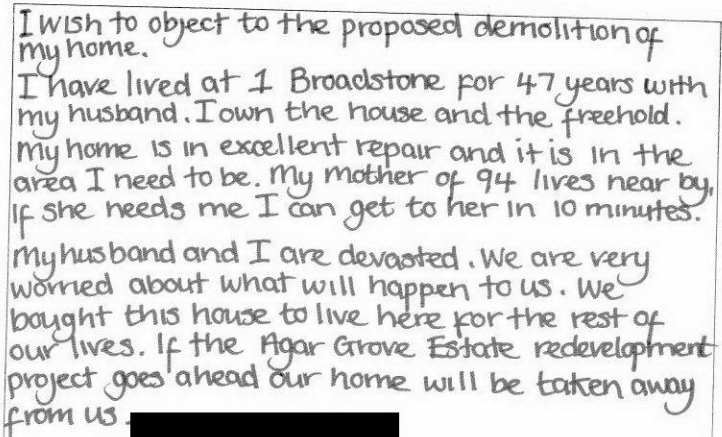 I wish to object to the proposed demolition of
my home.
I have lived at 1 Broadstone for 47 years with
my husband. I own the house and the freehold.
My home is in excellent repair and it is in the
area I need to be. My mother of 94 lives near by,
If she needs me I can get to her in 10 minutes.
My husband and I are devasted. We are very
worried about what will happen to us. We
bought this house to live here for the rest of
our lives. If the Agar Grove Estate redevelopment
project goes ahead our home will be taken away
from us.